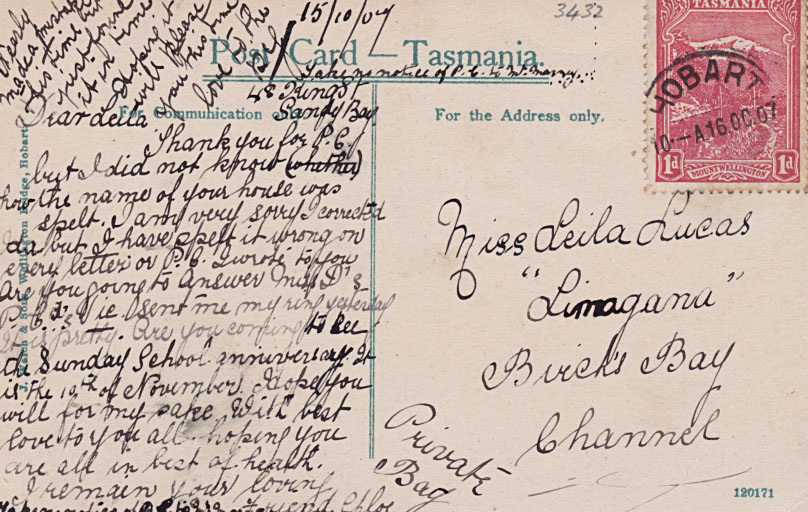 15/10/07
3432
TASMANIA
Post Card — Tasmania.
Take no notice of P.C. to
48 Kings
Sandy Bay
For Communication only.
For the Address only.
HOBART
10-A 16.OC.07
1d MOUNT WELLINGTON 1d
made a mistake
this time but
just found
it in time
Hoping it
will please
you this time
love to the
Dear Leila
Thank you for P.C.
but I did not know (whether)
how the name of your house was
spelt. I am very sorry I corrected
da but I have spelt it wrong on
every letter or P.C. I wrote to you
Are you going to answer Miss D's
P.C.
sent me my ring yesterday
It is pretty. Are you coming to see
the Sunday School anniversary. It
is the 10th of November. I hope you
will for my sake. With best
love to you all hoping you
are all in best of health.
I remain your loving
Friend Chloe
Miss Leila Lucas
"Limagana"
Birch's Bay
Channel
Private
Bag
J. Walch & Sons, Wellington Bridge, Hobart
120171